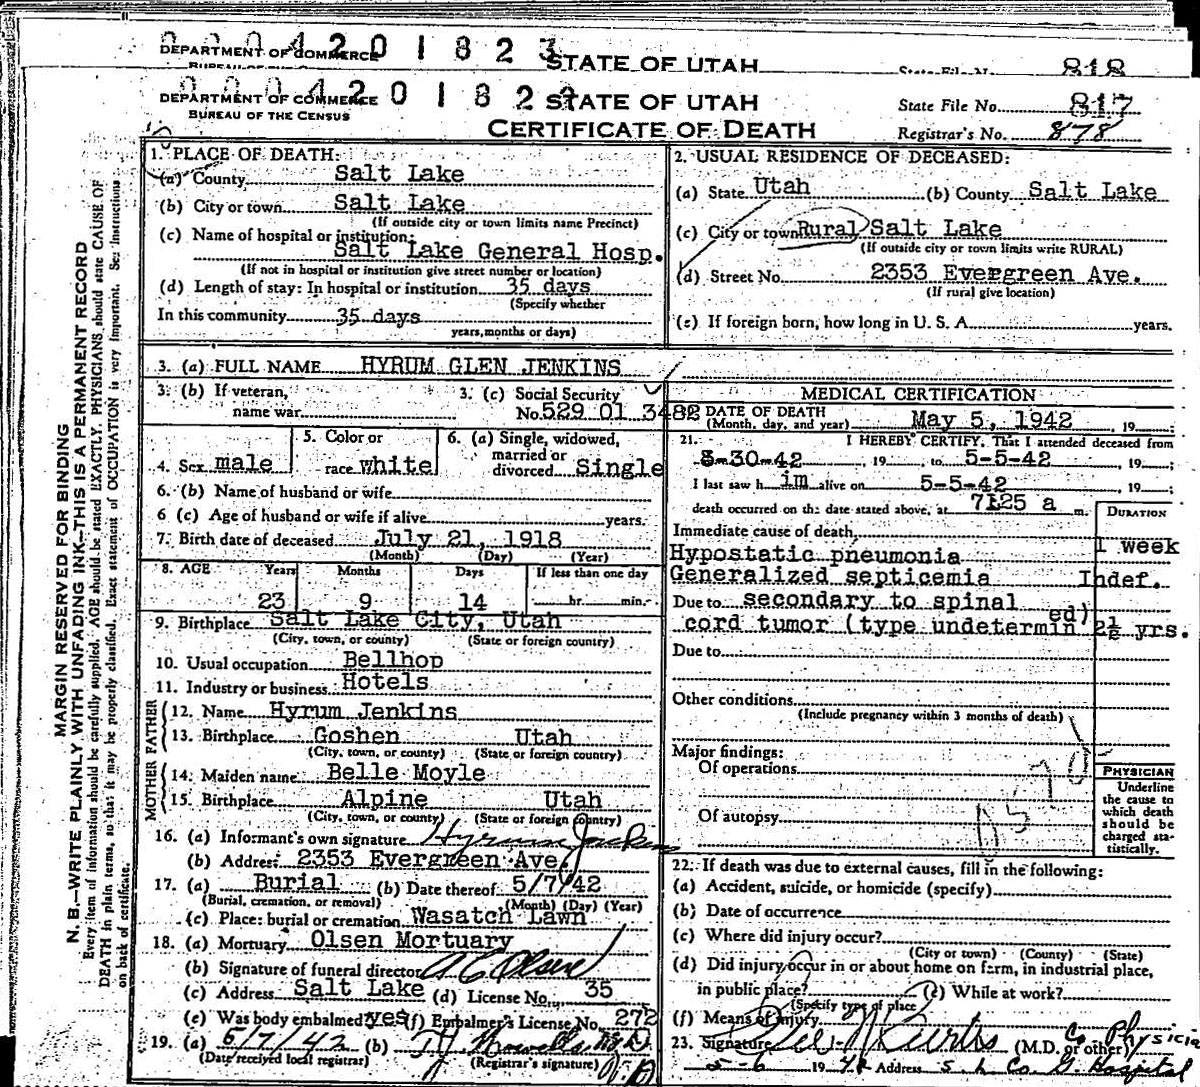 DEPARTMENT OF COMMERCE
STATE OF UTAH
818
DEPARTMENT OF COMMERCE
BUREAU OF THE CENSUS
STATE OF UTAH
CERTIFICATE OF DEATH
State File No. 817
Registrar's No. 878
MARGIN RESERVED FOR BINDING
N. B.—WRITE PLAINLY WITH UNFADING INK—THIS IS A PERMANENT RECORD
Every item of information should be carefully supplied. AGE should be stated EXACTLY. PHYSICIANS should state CAUSE OF
DEATH in plain terms, so that it may be properly classified. Exact statement of OCCUPATION is very important. See instructions
on back of certificate.
1. PLACE OF DEATH:
(a) County Salt Lake
(b) City or town Salt Lake
(If outside city or town limits name Precinct)
(c) Name of hospital or institution:
Salt Lake General Hosp.
(If not in hospital or institution give street number or location)
(d) Length of stay: In hospital or institution 35 days
(Specify whether
In this community 35 days
years, months or days)
2. USUAL RESIDENCE OF DECEASED:
(a) State Utah (b) County Salt Lake
(c) City or town Rural Salt Lake
(If outside city or town limits write RURAL)
(d) Street No. 2353 Evergreen Ave.
(If rural give location)
(e) If foreign born, how long in U. S. A. years.
3. (a) FULL NAME HYRUM GLEN JENKINS
3. (b) If veteran,
name war
3. (c) Social Security
No. 529 01 3482
4. Sex male
5. Color or
race white
6. (a) Single, widowed,
married or
divorced Single
6. (b) Name of husband or wife
6 (c) Age of husband or wife if alive years.
7. Birth date of deceased July 21, 1918
(Month) (Day) (Year)
8. AGE Years Months Days If less than one day
23 9 14 hr. min.
9. Birthplace Salt Lake City, Utah
(City, town, or county) (State or foreign country)
10. Usual occupation Bellhop
11. Industry or business Hotels
FATHER
12. Name Hyrum Jenkins
13. Birthplace Goshen Utah
(City, town, or county) (State or foreign country)
MOTHER
14. Maiden name Belle Moyle
15. Birthplace Alpine Utah
(City, town, or county) (State or foreign country)
16. (a) Informant's own signature Hyrum Jenkins
(b) Address 2353 Evergreen Ave.
17. (a) Burial (b) Date thereof 5/7/42
(Burial, cremation, or removal) (Month) (Day) (Year)
(c) Place: burial or cremation Wasatch Lawn
18. (a) Mortuary Olsen Mortuary
(b) Signature of funeral director
(c) Address Salt Lake (d) License No. 35
(e) Was body embalmed? yes (f) Embalmer's License No. 272
19. (a) 5/7/42 (b)
(Date received local registrar) (Registrar's signature)
MEDICAL CERTIFICATION
DATE OF DEATH
(Month, day, and year) May 5, 1942, 19
21. I HEREBY CERTIFY, That I attended deceased from
-30-42, 19 , to 5-5-42, 19 ;
I last saw h im alive on 5-5-42, 19 ;
death occurred on the date stated above, at 7:25 a m.
DURATION
Immediate cause of death
Hypostatic pneumonia 1 week
Generalized septicemia Indef.
Due to secondary to spinal
cord tumor (type undetermined) 2½ yrs.
Due to
Other conditions
(Include pregnancy within 3 months of death)
Major findings:
Of operations
Of autopsy
PHYSICIAN
Underline
the cause to
which death
should be
charged sta-
tistically.
22. If death was due to external causes, fill in the following:
(a) Accident, suicide, or homicide (specify)
(b) Date of occurrence
(c) Where did injury occur?
(City or town) (County) (State)
(d) Did injury occur in or about home on farm, in industrial place,
in public place? (e) While at work?
(Specify type of place
(f) Means of injury
23. Signature Kurtis (M.D. or other) Co. Physician
5-6 1942 Address S. L. Co. G. Hospital